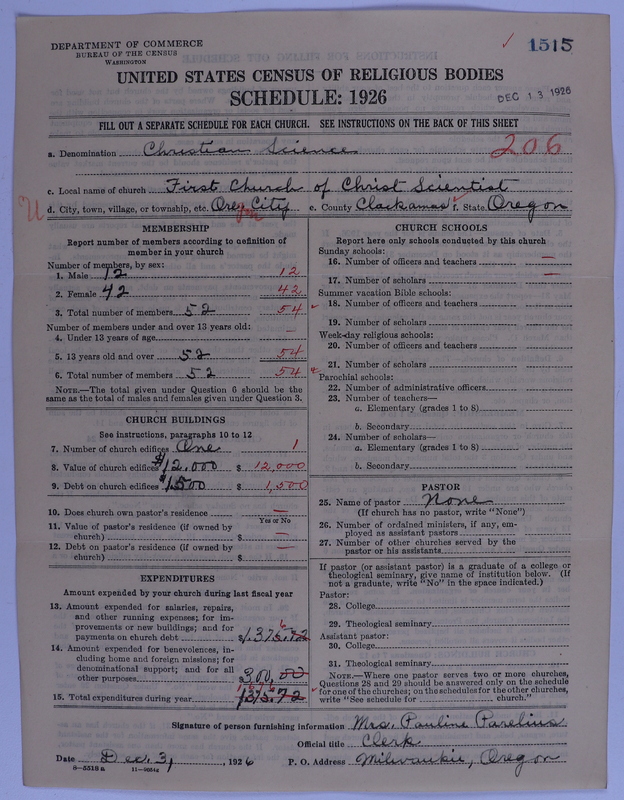 DEPARTMENT OF COMMERCE
BUREAU OF THE CENSUS
WASHINGTON
✓ 1515
UNITED STATES CENSUS OF RELIGIOUS BODIES
SCHEDULE: 1926
DEC 13 1926
FILL OUT A SEPARATE SCHEDULE FOR EACH CHURCH. SEE INSTRUCTIONS ON THE BACK OF THIS SHEET
a. Denomination Christian Science 206
c. Local name of church First Church of Christ Scientist
d. City, town, village, or township, etc. Oreg City e. County Clackamas f. State Oregon
MEMBERSHIP
Report number of members according to definition of
member in your church
Number of members, by sex:
1. Male 12 12
2. Female 42 42
3. Total number of members 52 54
Number of members under and over 13 years old:
4. Under 13 years of age
5. 13 years old and over 52 54
6. Total number of members 52 54
NOTE.—The total given under Question 6 should be the
same as the total of males and females given under Question 3.
CHURCH BUILDINGS
See instructions, paragraphs 10 to 12
7. Number of church edifices One 1
8. Value of church edifices $12,000 $ 12,000
9. Debt on church edifices $1500 $ 1,500
10. Does church own pastor's residence —
Yes or No
11. Value of pastor's residence (if owned by
church) $ —
12. Debt on pastor's residence (if owned by
church) $ —
EXPENDITURES
Amount expended by your church during last fiscal year
13. Amount expended for salaries, repairs,
and other running expenses; for im-
provements or new buildings; and for
payments on church debt $1,375.72
14. Amount expended for benevolences, in-
cluding home and foreign missions; for
denominational support; and for all
other purposes 300.00
15. Total expenditures during year
CHURCH SCHOOLS
Report here only schools conducted by this church
Sunday schools:
16. Number of officers and teachers —
17. Number of scholars —
Summer vacation Bible schools:
18. Number of officers and teachers
19. Number of scholars
Week-day religious schools:
20. Number of officers and teachers
21. Number of scholars
Parochial schools:
22. Number of administrative officers
23. Number of teachers—
a. Elementary (grades 1 to 8)
b. Secondary
24. Number of scholars—
a. Elementary (grades 1 to 8)
b. Secondary
PASTOR
25. Name of pastor None
(If church has no pastor, write "None")
26. Number of ordained ministers, if any, em-
ployed as assistant pastors
27. Number of other churches served by the
pastor or his assistants
If pastor (or assistant pastor) is a graduate of a college or
theological seminary, give name of institution below. (If
not a graduate, write "No" in the space indicated.)
Pastor:
28. College
29. Theological seminary
Assistant pastor:
30. College
31. Theological seminary
NOTE.—Where one pastor serves two or more churches,
Questions 28 and 29 should be answered only on the schedule
for one of the churches; on the schedules for the other churches,
write "See schedule for church."
Signature of person furnishing information Mrs. Pauline Parelius
Official title Clerk
Date Dec. 3, 1926 P. O. Address Milwaukie, Oregon
8—5518a 11—9054d